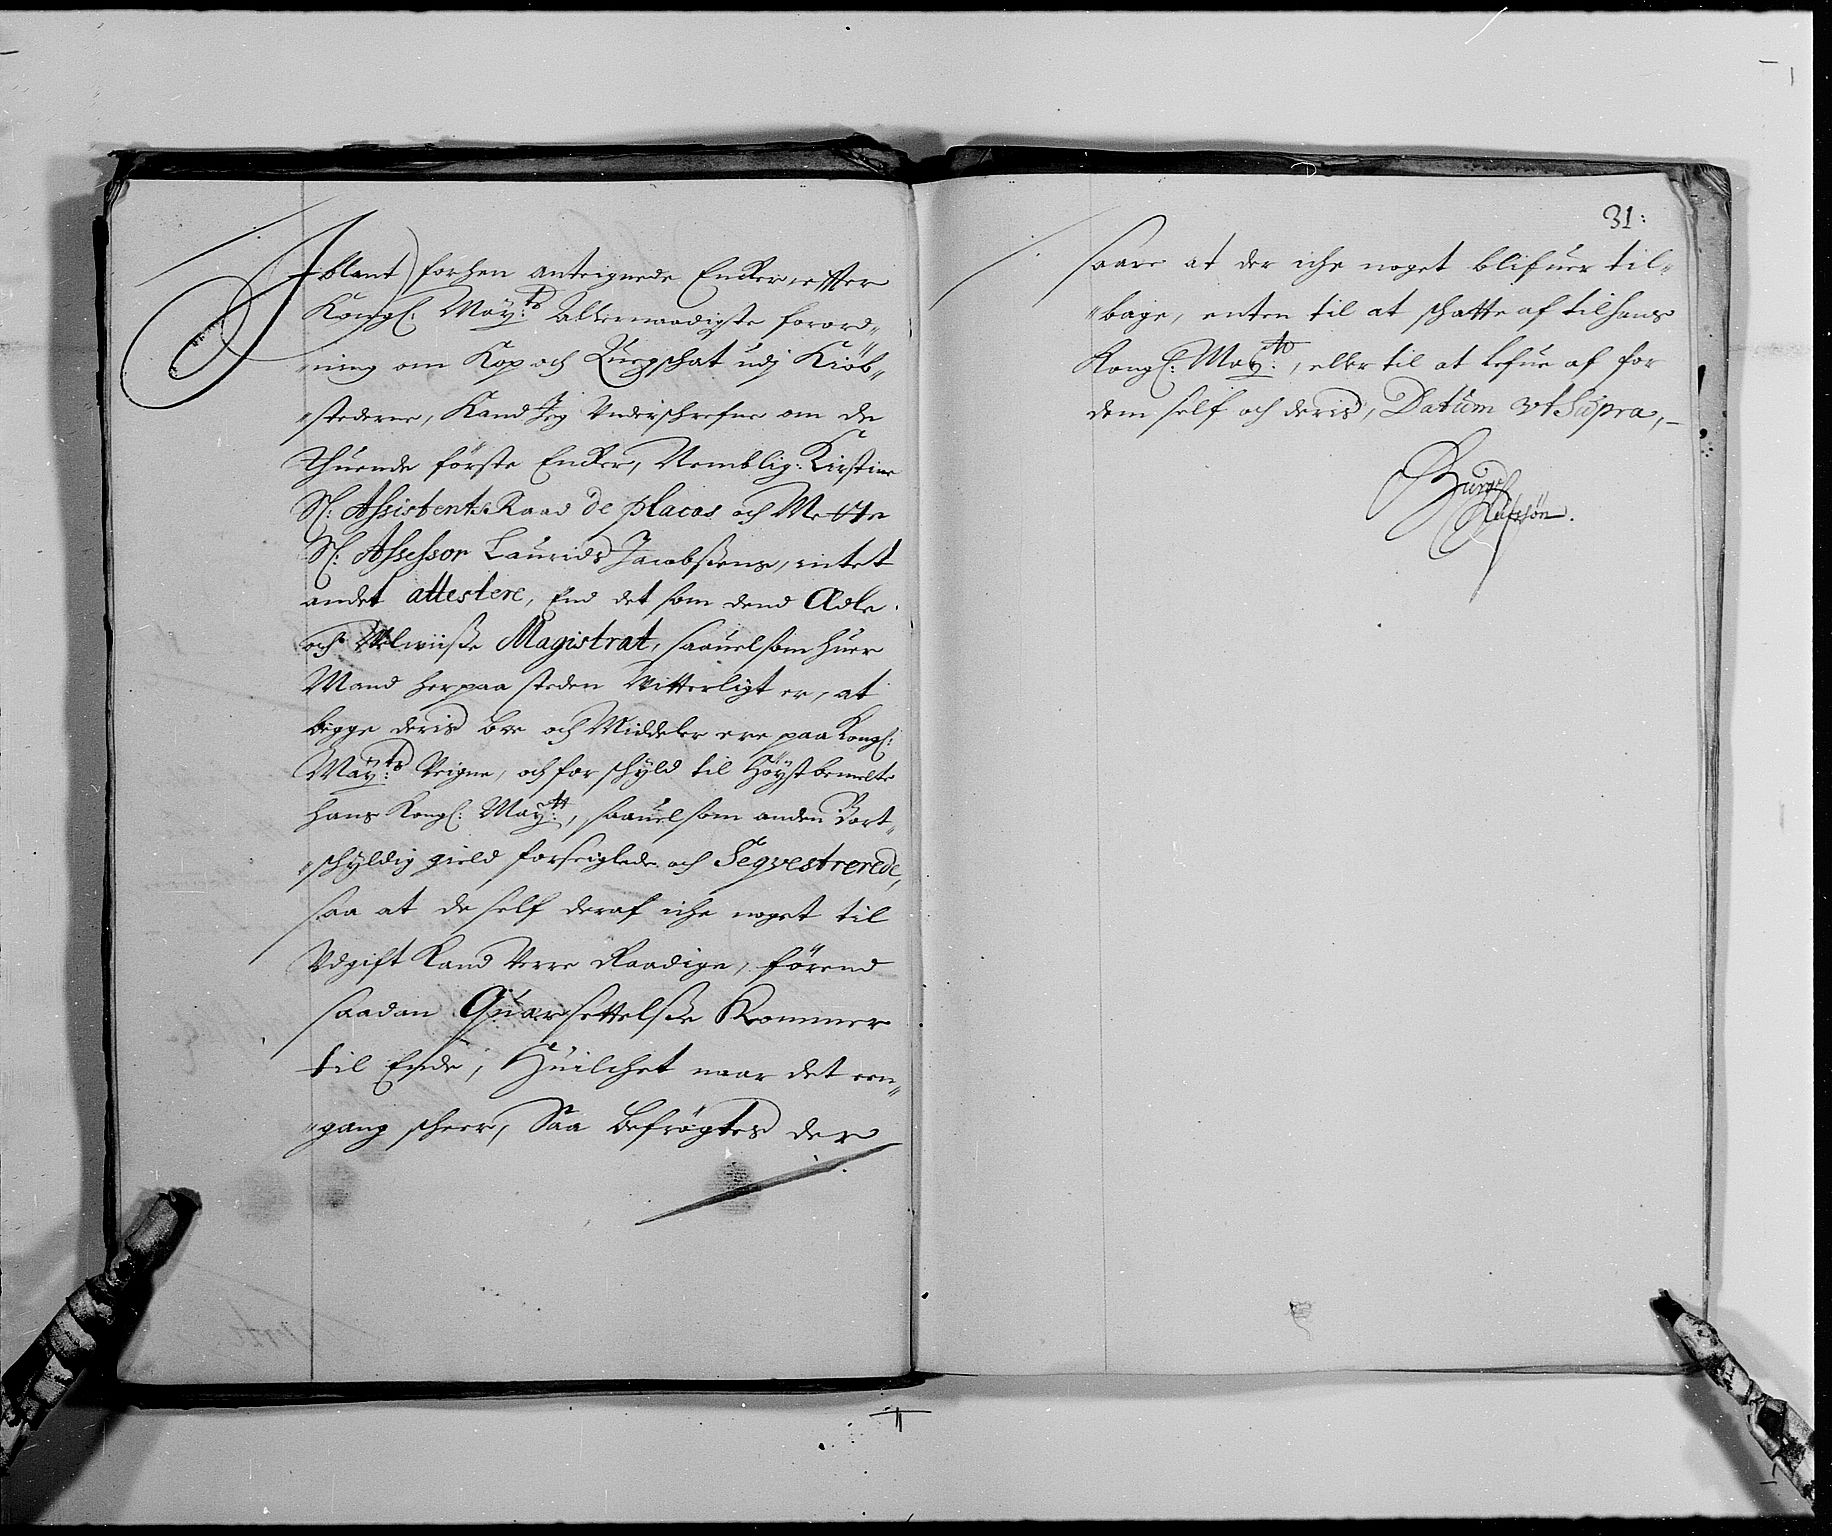 Iblant forhen anteignede Encker, effter
Kongl: May:ts Allernaadigste forord„
„ning om Kop och Quegschat udj Kiøb„
„stederne, Kand Jeg Underschrefne om de
Thuende første Encker, Nemblig: Kirstine
Sl: Assistentz Raad de placas och Mette
Sl: Assessor Laurids Jacobsens, intet
andet attestere, End det som dend Ædle
och Velwiisse Magistrat, saauelsom huer
Mand her paa steden Vitterligt er, at
begge deris boe och Middeler ere paa Kongl:
May:ts Veigne, och for schyld til Høystbemelte
hans Kongl: May:tt, saauelsom anden Bort„
„schyldig gield forseiglede och Seqvestrerede,
saa at de self deraf iche noget til
Udgift Kand Verre Raadige, førend
saadan Quarsettelsse Kommer
til Ende, Huilchet naar det een„
„gang scheer, Saa befrøgtes der
31:
saare at der iche noget blifuer til„
„bage, enten til at schatte af til hans
Kongl: May:tt, eller til at lefue af for
dem self och deris, Datum Ut Supra,